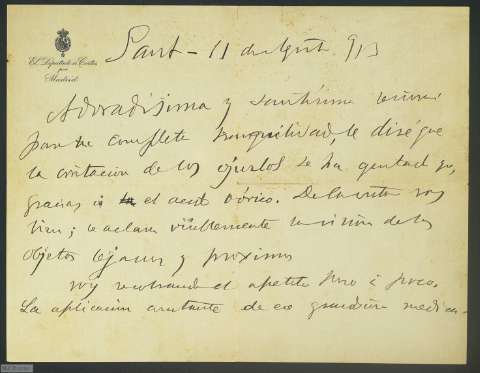 El Diputado a Cortes
por
Madrid
Sant - 11 de Agost 913
Adoradísima y santísima
para tu completa tranquilidad, te diré que
la irritación de los ojuelos se ha quitado ya,
gracias á el acid bórico. De la vista voy
bien; se aclara visiblemente la visión de los
objetos lejanos y próximos
Voy recobrando el apetito poco á poco.
La aplicación constante de ese grandísimo medica-